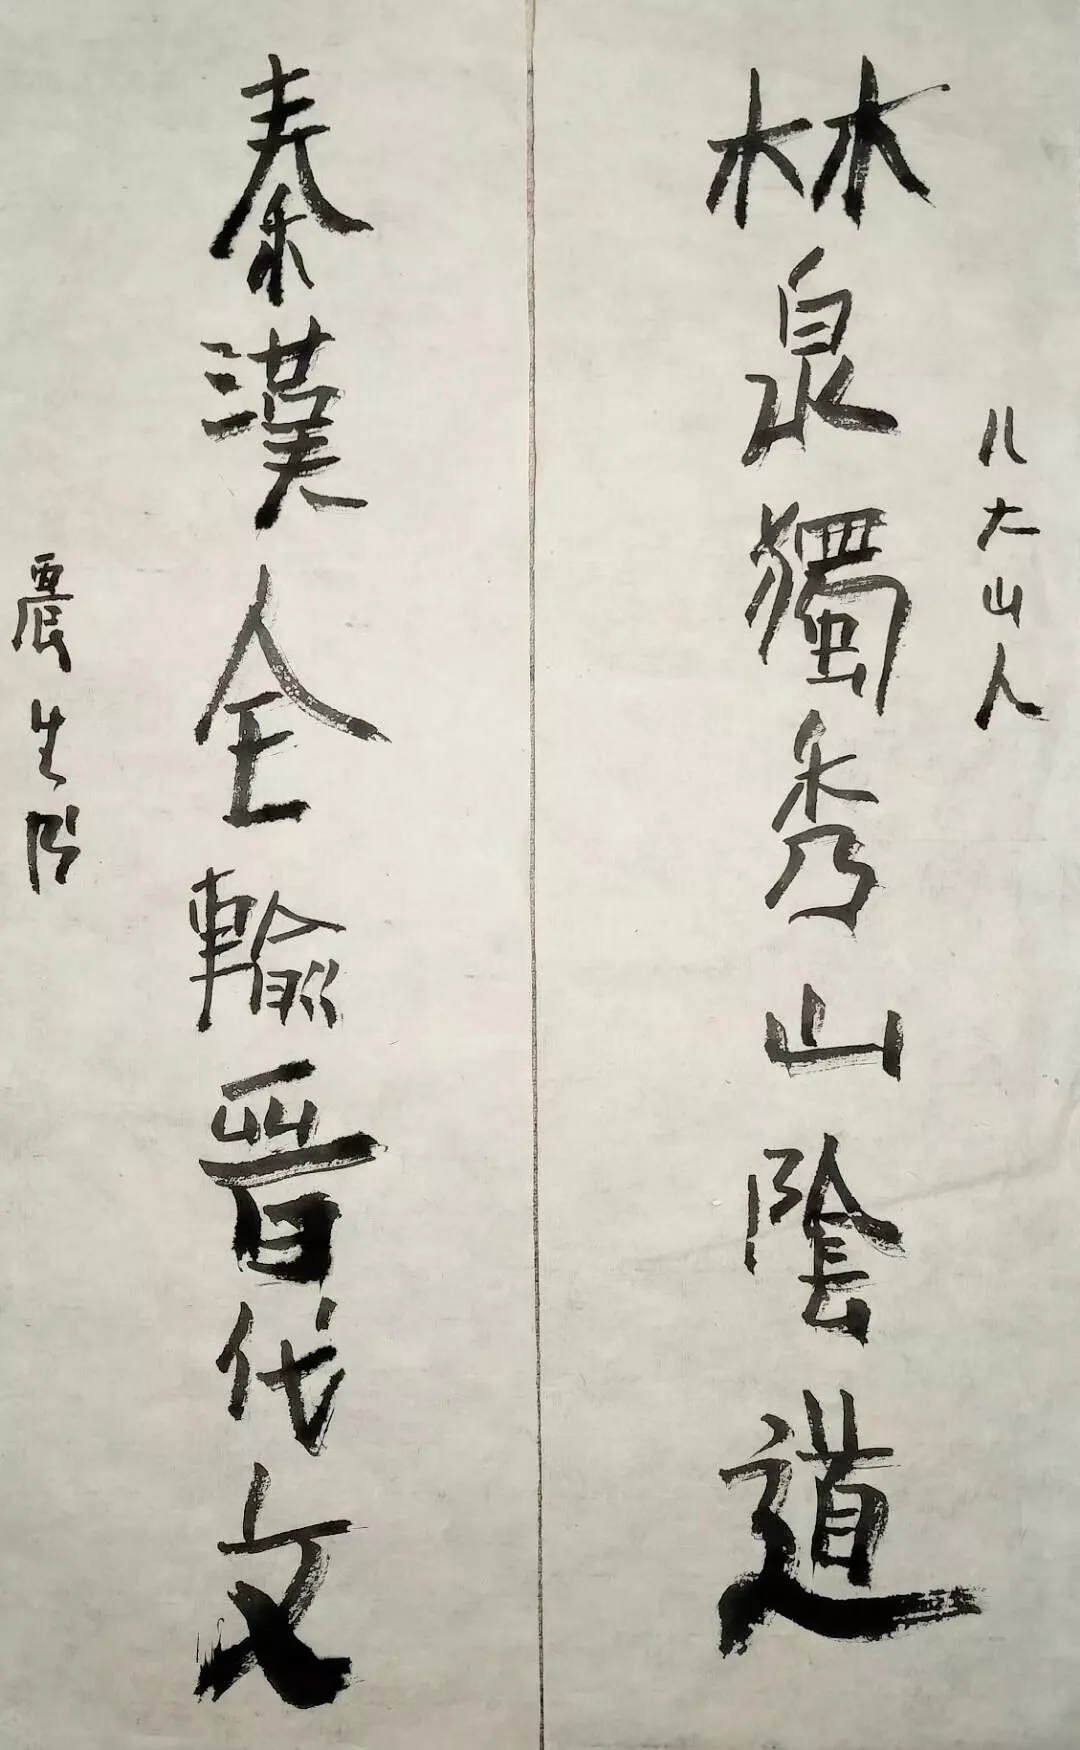 八大山人
林泉獨秀山陰道
秦漢全輸晉代文
生